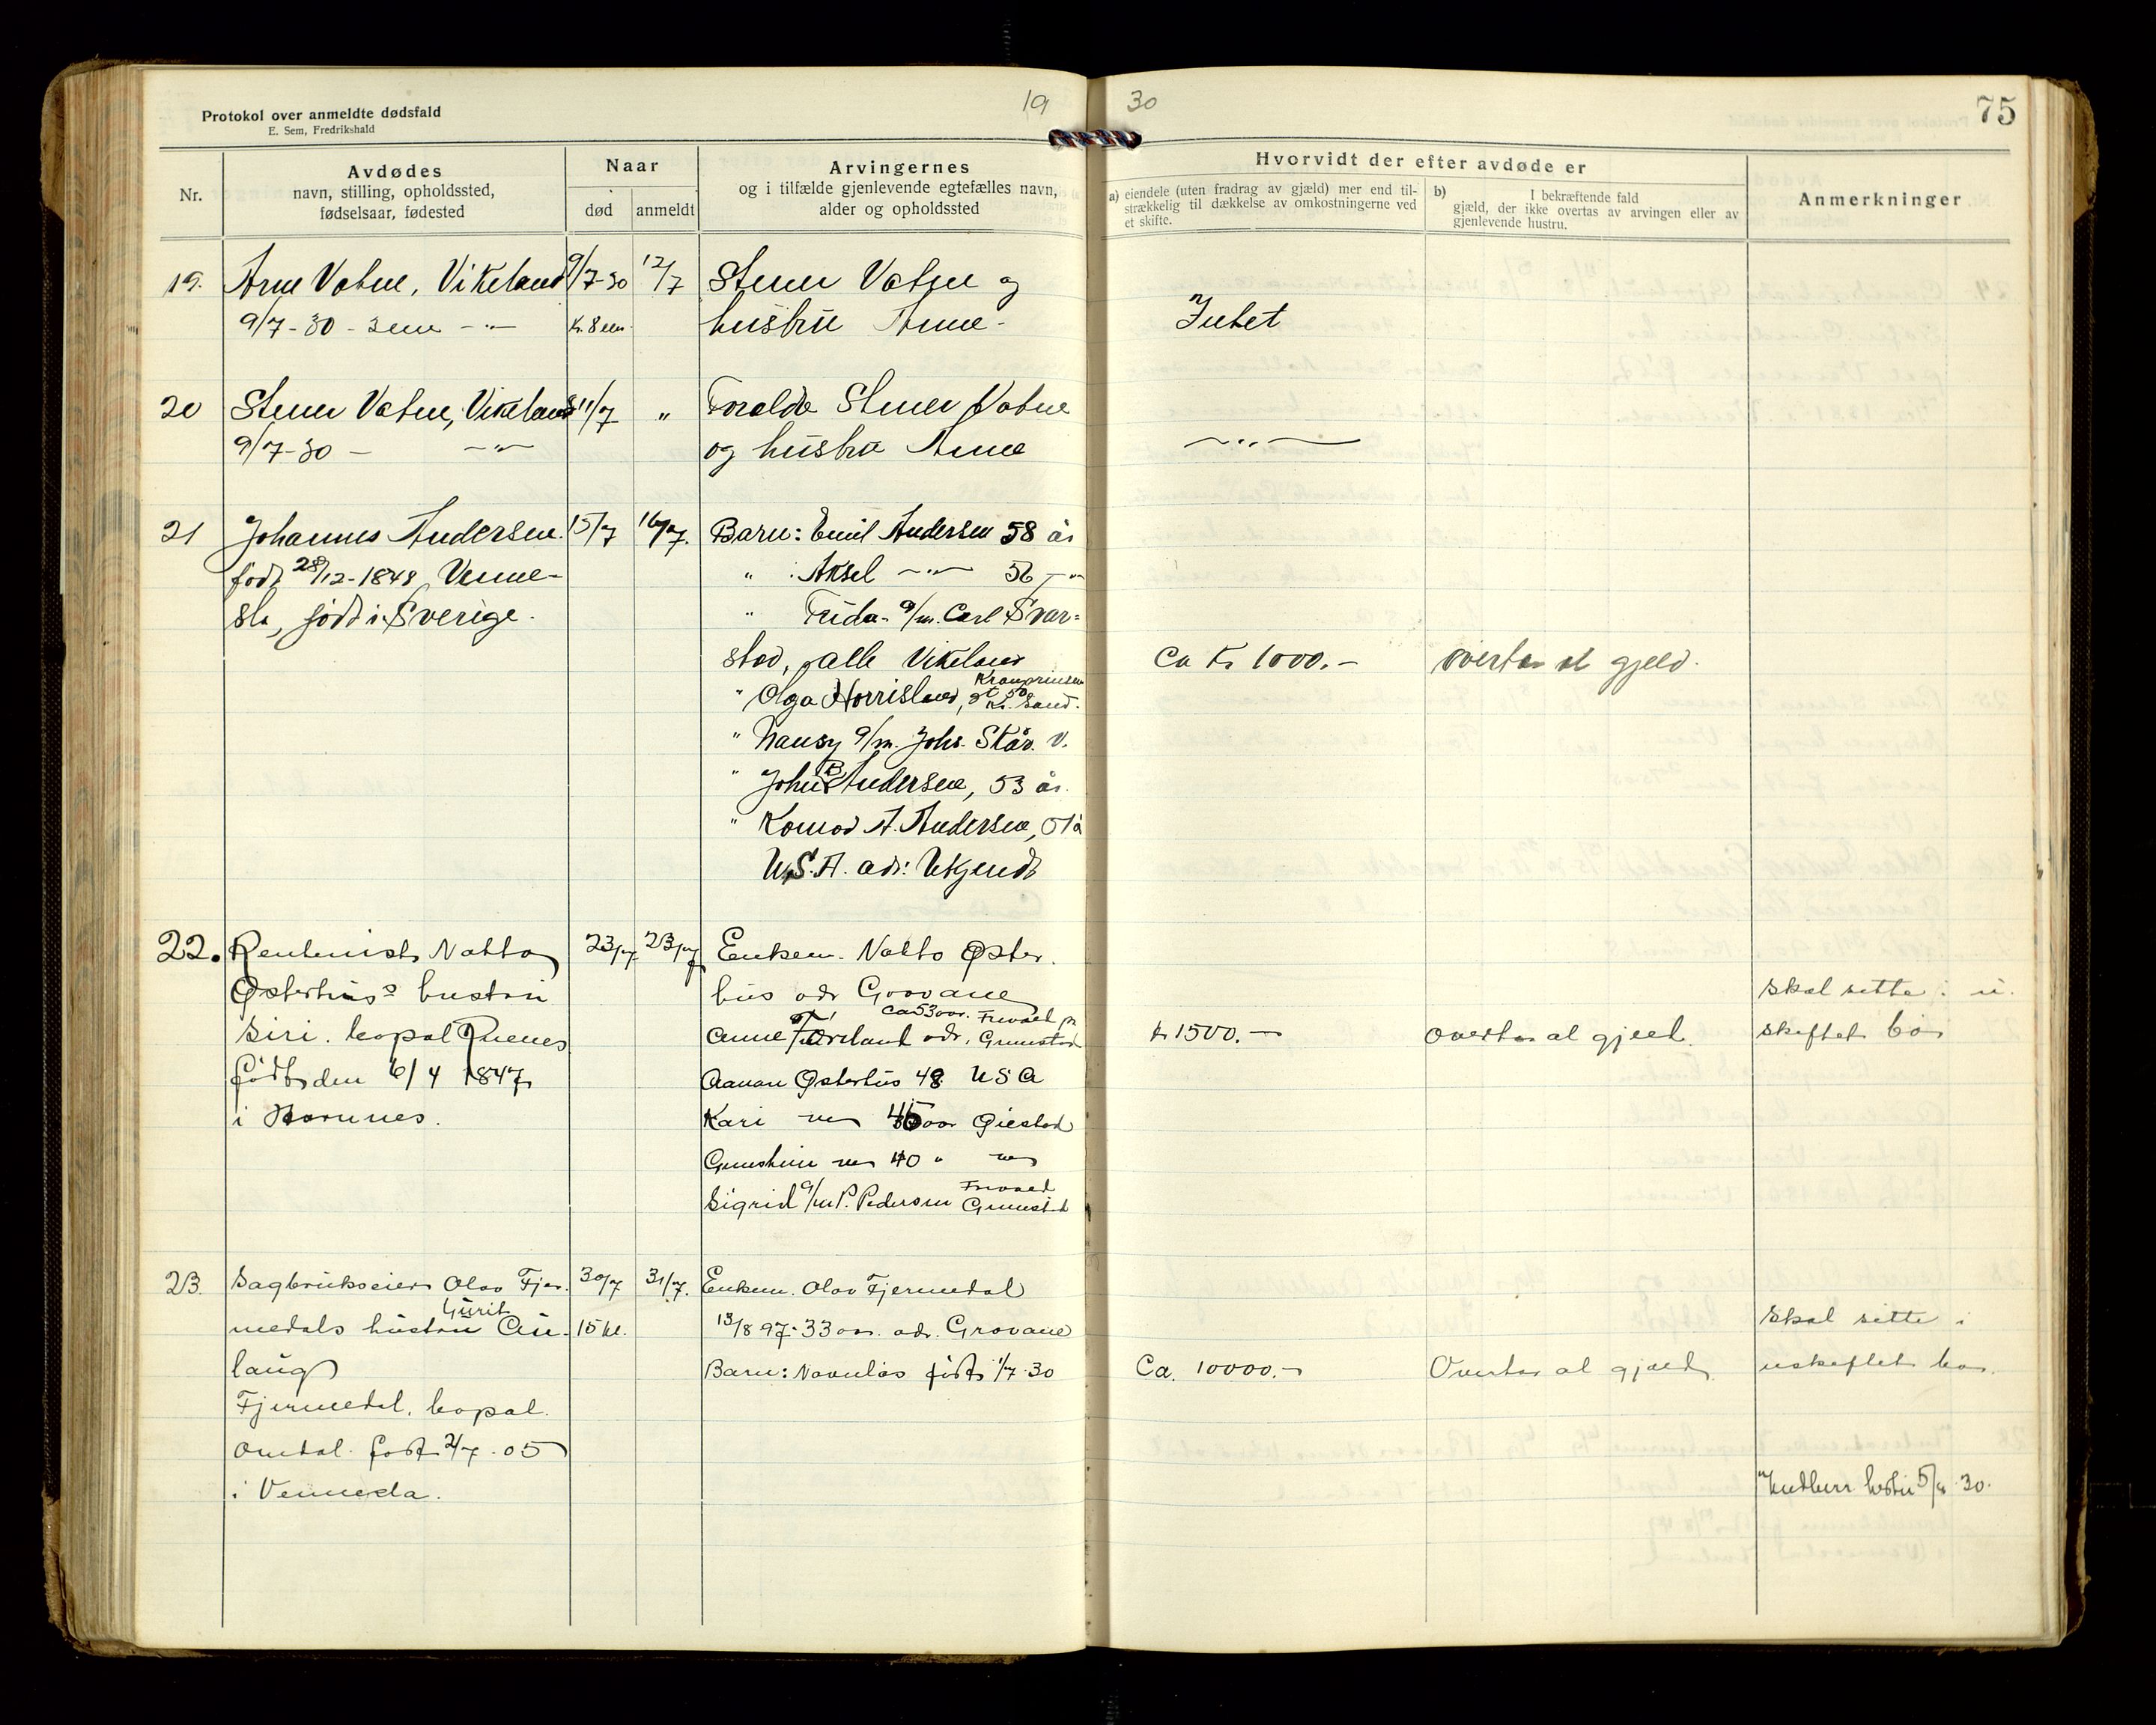 Protokol over anmeldte dødsfald
E. Sem, Fredrikshald
19 30
75
Nr.
Avdødes
navn, stilling, opholdssted,
fødselsaar, fødested
Naar
død
anmeldt
Arvingernes
og i tilfælde gjenlevende egtefælles navn,
alder og opholdssted
Hvorvidt der efter avdøde er
a) eiendele (uten fradrag av gjæld) mer end til-
strækkelig til dækkelse av omkostningerne ved
et skifte.
b) I bekræftende fald
gjæld, der ikke overtas av arvingen eller av
gjenlevende hustru.
Anmerkninger
19. Arne Vatne, Vikeland 9/7-30 12/7 Stener Vatne og
9/7-30 - sem - " - K. 8 em. hustru Anne -
Intet
20 Stener Vatne, Vikeland 11/7 " Foreldre Stener Vatne
9/7-30 - - " - og hustru Anne
- " -
21 Johannes Andersen. 15/7 16/7. Barn: Emil Andersen 58 år
født 28/12-1848, Venne- " Aksel - " - 56 - " -
sla, født i Sverige. " Frida g/m. Carl Svar=
stad, alle Vikeland
Ca Kr 1000.- overtar al gjeld.
" Olga Horrisland, Kronprinsen
gt 50 Kr. Sand.
" Nansy g/m. Johs. Skår. V.
" John B Andersen, 53 år.
" Konrad A. Andersen, 51 å
U.S.A. adr: Ukjendt
22. Rentenist Natto 23/7 23/7 Enkem. Natto Øster.
Østerhus's hustru hus adr Grovane
Skal sitte i u.
Siri. kopal Ruenes ca 53 aar. Frivold pr
Anne Færeland adr. Grimstad
kr 1500.- overtar al gjeld. skiftet bo
født den 6/4 1847 Aanan Østerhus 48 USA
i Hornnes. Kari 45 aar Øiestad
Gunstein 40 "
Sigrid g/m P. Pedersen Frivold
Grimstad
23. Sagbrukseier Olav Fjer- 30/7 31/7. Enkem. Olav Fjermedal
medals hustru Gurit Au- 15 kl. 13/8 97 - 33 aar. adr. Grovane
Skal sitte i
laug Barn: Navnløs født 1/7 30
Ca. 10000.- Overtar al gjæld uskiftet bo.
Fjermedal. kopal.
Omdal. født 2/7 - 05
i Vennesla.
5/8 30.